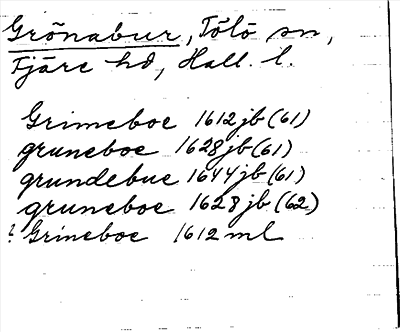 Grönabur, Tölö sn,
Fjäre hd, Hall. l.
Grimeboe 1612 jb (61)
gruneboe 1628 jb (61)
grundebue 1644 jb (61)
gruneboe 1628 jb (62)
? Grineboe 1612 ml